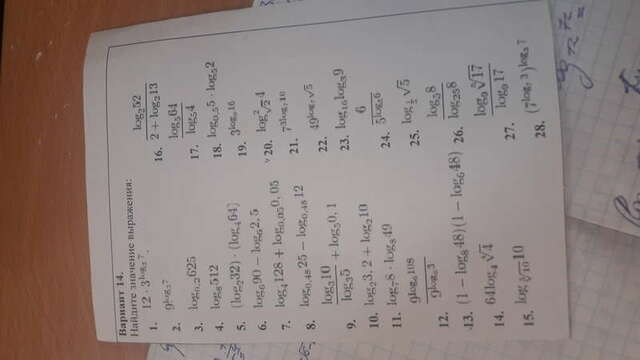 Вариант 14.
Найдите значение выражения:
1. 12 · 3^{log_3 7}.
2. 9^{log_3 7}
3. log_{0,2} 625
4. log_8 512
5. (log_2 32) · (log_4 64)
6. log_6 90 − log_6 2,5
7. log_4 128 + log_{0,05} 0,05
8. log_{0,48} 25 − log_{0,48} 12
9. \frac{log_3 10}{log_3 5} + log_5 0,1
10. log_2 3,2 + log_2 10
11. log_7 8 · log_8 49
12. \frac{9^{log_6 108}}{9^{log_6 3}}
13. (1 − log_8 48)(1 − log_6 48)
14. 64 log_4 \sqrt[8]{4}
15. log_{\sqrt[5]{10}} 10
16. \frac{log_2 52}{2 + log_2 13}
17. \frac{log_5 64}{log_5 4}
18. log_{0,5} 5 · log_5 2
19. 3^{log_9 16}
20. log^2_{\sqrt{2}} 4
21. 7^{3 log_7 10}
22. 49^{log_7 \sqrt{5}}
23. log_{16} log_3 9
24. \frac{6}{5^{log_5 6}}
25. log_{\frac{1}{5}} \sqrt{5}
26. \frac{log_5 8}{log_{25} 8}
27. \frac{log_9 \sqrt[5]{17}}{log_9 17}
28. (7^{log_7 3})^{log_3 7}